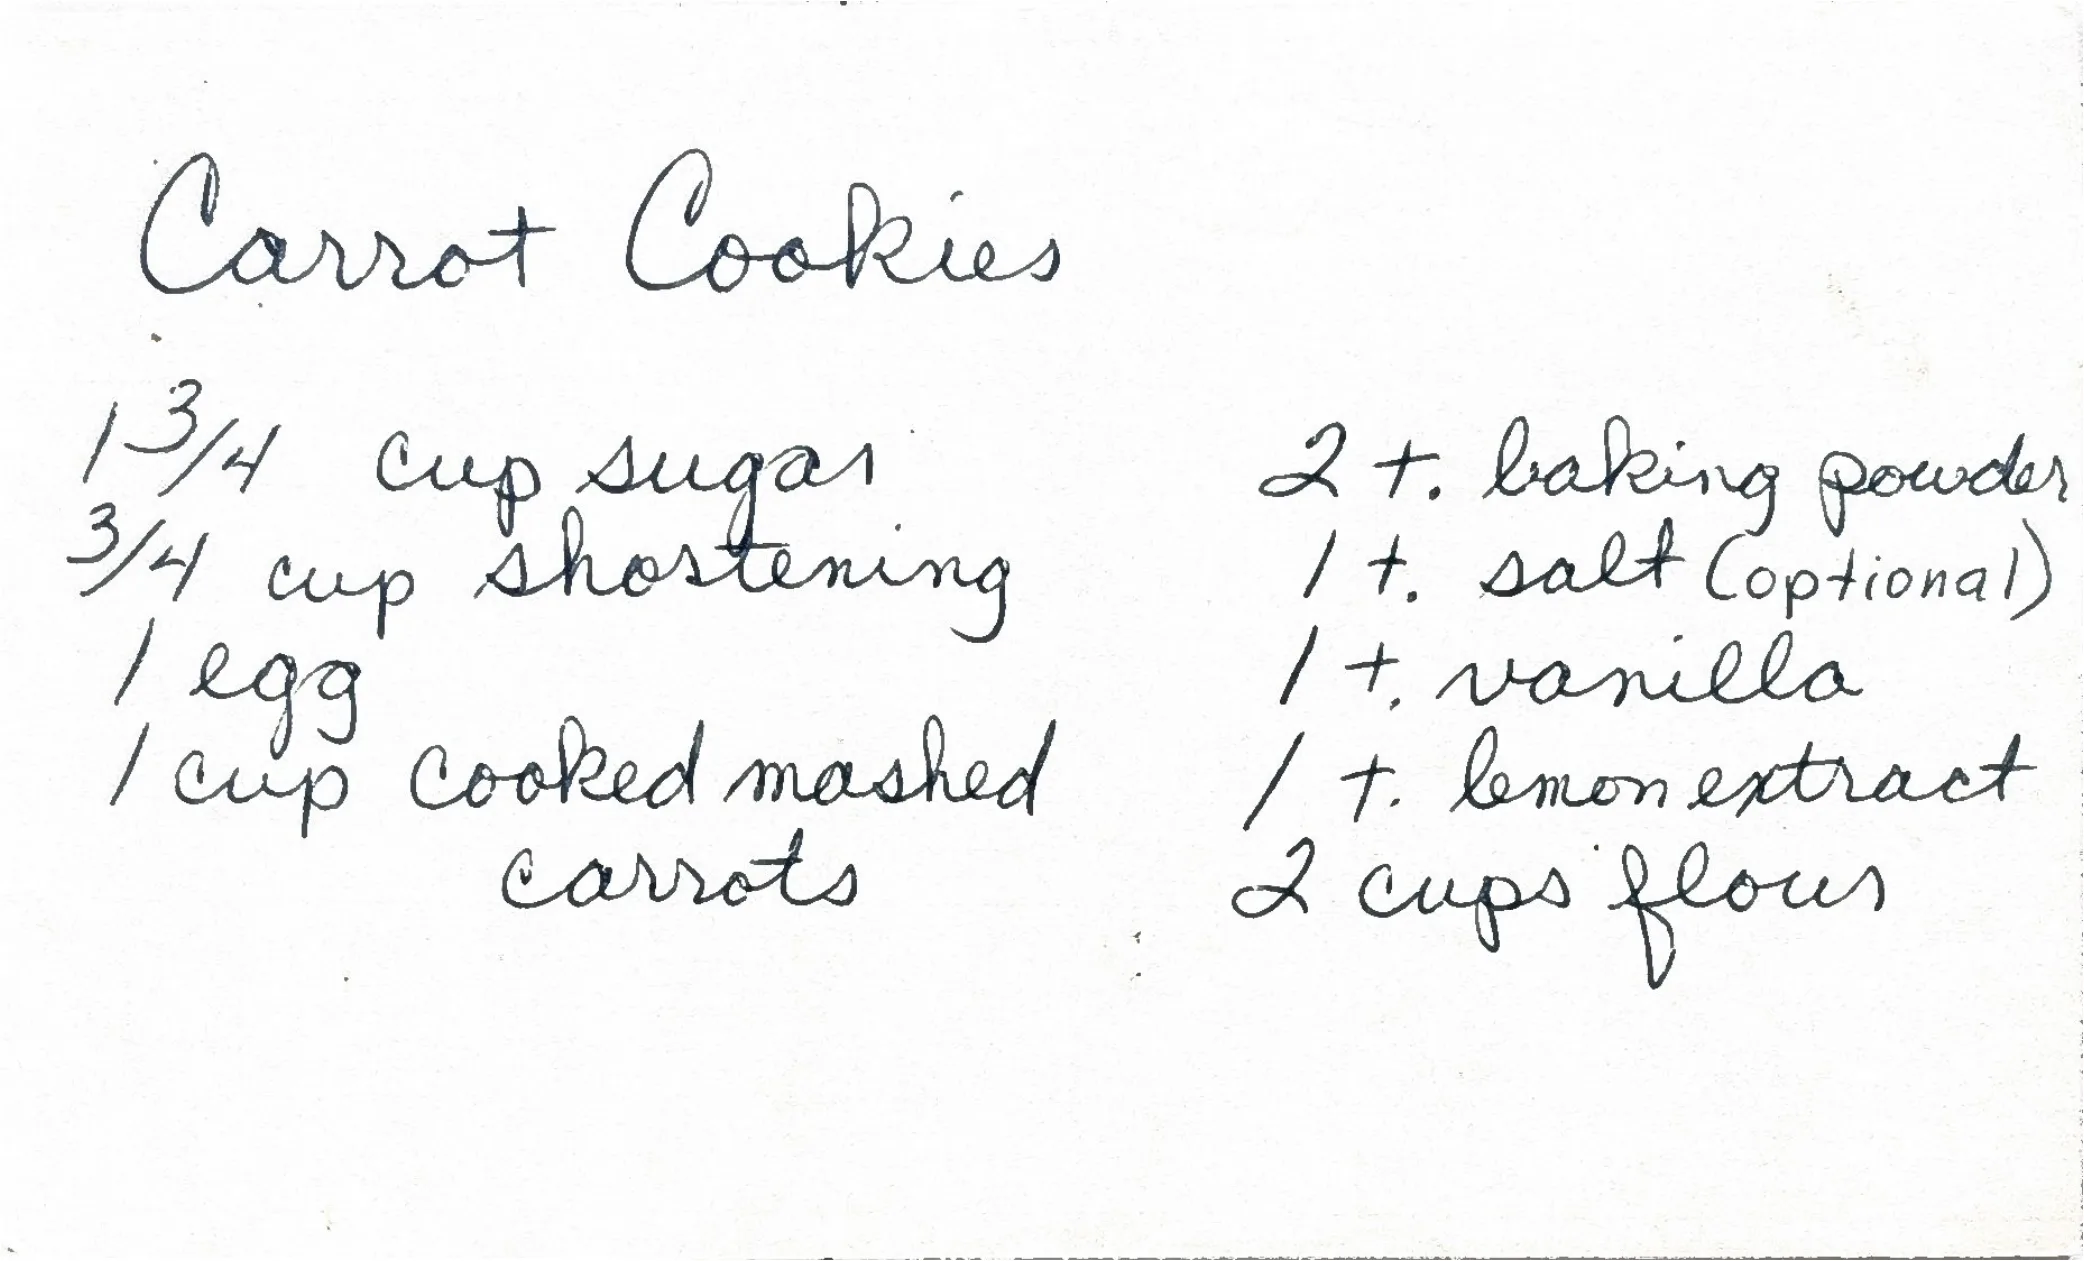 Carrot Cookies
1 3/4 cup sugar
3/4 cup shortening
1 egg
1 cup cooked mashed
carrots
2 t. baking powder
1 t. salt (optional)
1 t. vanilla
1 t. lemon extract
2 cups flour